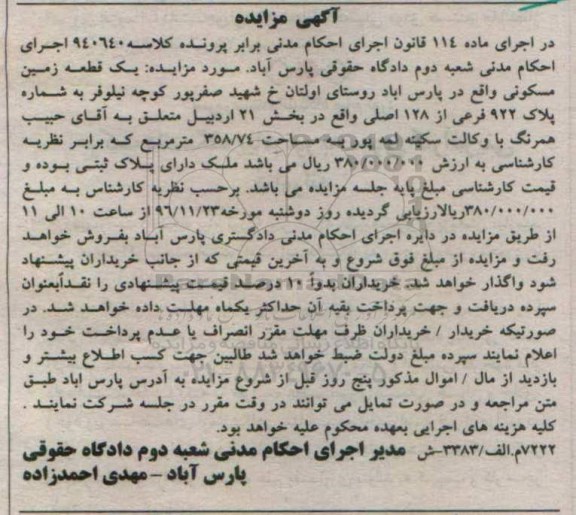 آگهی مزایده
در اجرای ماده ۱۱۴ قانون اجرای احکام مدنی برابر پرونده کلاسه ۹۴۰۶۴۰ اجرای
احکام مدنی شعبه دوم دادگاه حقوقی پارس آباد. مورد مزایده: یک قطعه زمین
مسکونی واقع در پارس اباد روستای اولتان خ شهید صفرپور کوچه نیلوفر به شماره
پلاک ۹۲۲ فرعی از ۱۲۸ اصلی واقع در بخش ۲۱ اردبیل متعلق به آقای حبیب
همرنگ با وکالت سکینه لمه پور به مساحت ۳۵۸/۷۴ مترمربع که برابر نظریه
کارشناسی به ارزش ۳۸۰/۰۰۰/۰۰۰ ریال می باشد ملک دارای پلاک ثبتی بوده و
قیمت کارشناسی مبلغ پایه جلسه مزایده می باشد. برحسب نظریه کارشناس به مبلغ
۳۸۰/۰۰۰/۰۰۰ریالارزیابی گردیده روز دوشنبه مورخه۹۶/۱۱/۲۳ از ساعت ۱۰ الی ۱۱
از طریق مزایده در دایره اجرای احکام مدنی دادگستری پارس آباد بفروش خواهد
رفت و مزایده از مبلغ فوق شروع و به آخرین قیمتی که از جانب خریداران پیشنهاد
شود واگذار خواهد شد. خریداران بدواً ۱۰ درصد قیمت پیشنهادی را نقداًبعنوان
سپرده دریافت و جهت پرداخت بقیه آن حداکثر یکماه مهلت داده خواهد شد. در
صورتیکه خریدار / خریداران ظرف مهلت مقرر انصراف یا عدم پرداخت خود را
اعلام نمایند سپرده مبلغ دولت ضبط خواهد شد طالبین جهت کسب اطلاع بیشتر و
بازدید از مال / اموال مذکور پنج روز قبل از شروع مزایده به آدرس پارس اباد طبق
متن مراجعه و در صورت تمایل می توانند در وقت مقرر در جلسه شرکت نمایند .
کلیه هزینه های اجرایی بعهده محکوم علیه خواهد بود.
۷۲۲۲م.الف/۳۳۸۳-ش مدیر اجرای احکام مدنی شعبه دوم دادگاه حقوقی
پارس آباد -مهدی احمدزاده